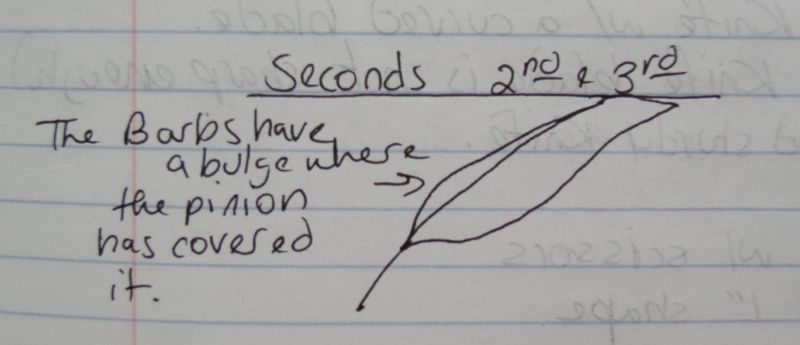 Seconds 2nd & 3rd
The Barbs have
a bulge where
the pinion
has covered
it.